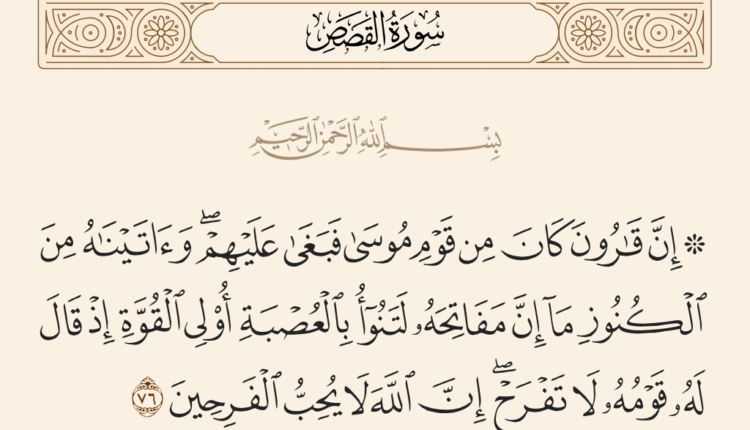 سُورَةُ القَصَصِ
بِسْمِ ٱللَّهِ ٱلرَّحْمَٰنِ ٱلرَّحِيمِ
۞ إِنَّ قَٰرُونَ كَانَ مِن قَوْمِ مُوسَىٰ فَبَغَىٰ عَلَيْهِمْۖ وَءَاتَيْنَٰهُ مِنَ
ٱلْكُنُوزِ مَآ إِنَّ مَفَاتِحَهُۥ لَتَنُوٓأُ بِٱلْعُصْبَةِ أُو۟لِى ٱلْقُوَّةِ إِذْ قَالَ
لَهُۥ قَوْمُهُۥ لَا تَفْرَحْۖ إِنَّ ٱللَّهَ لَا يُحِبُّ ٱلْفَرِحِينَ ٧٦